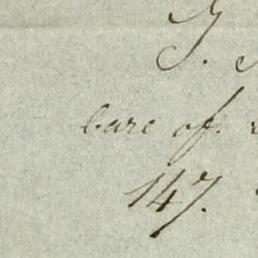 J.
care of
147.